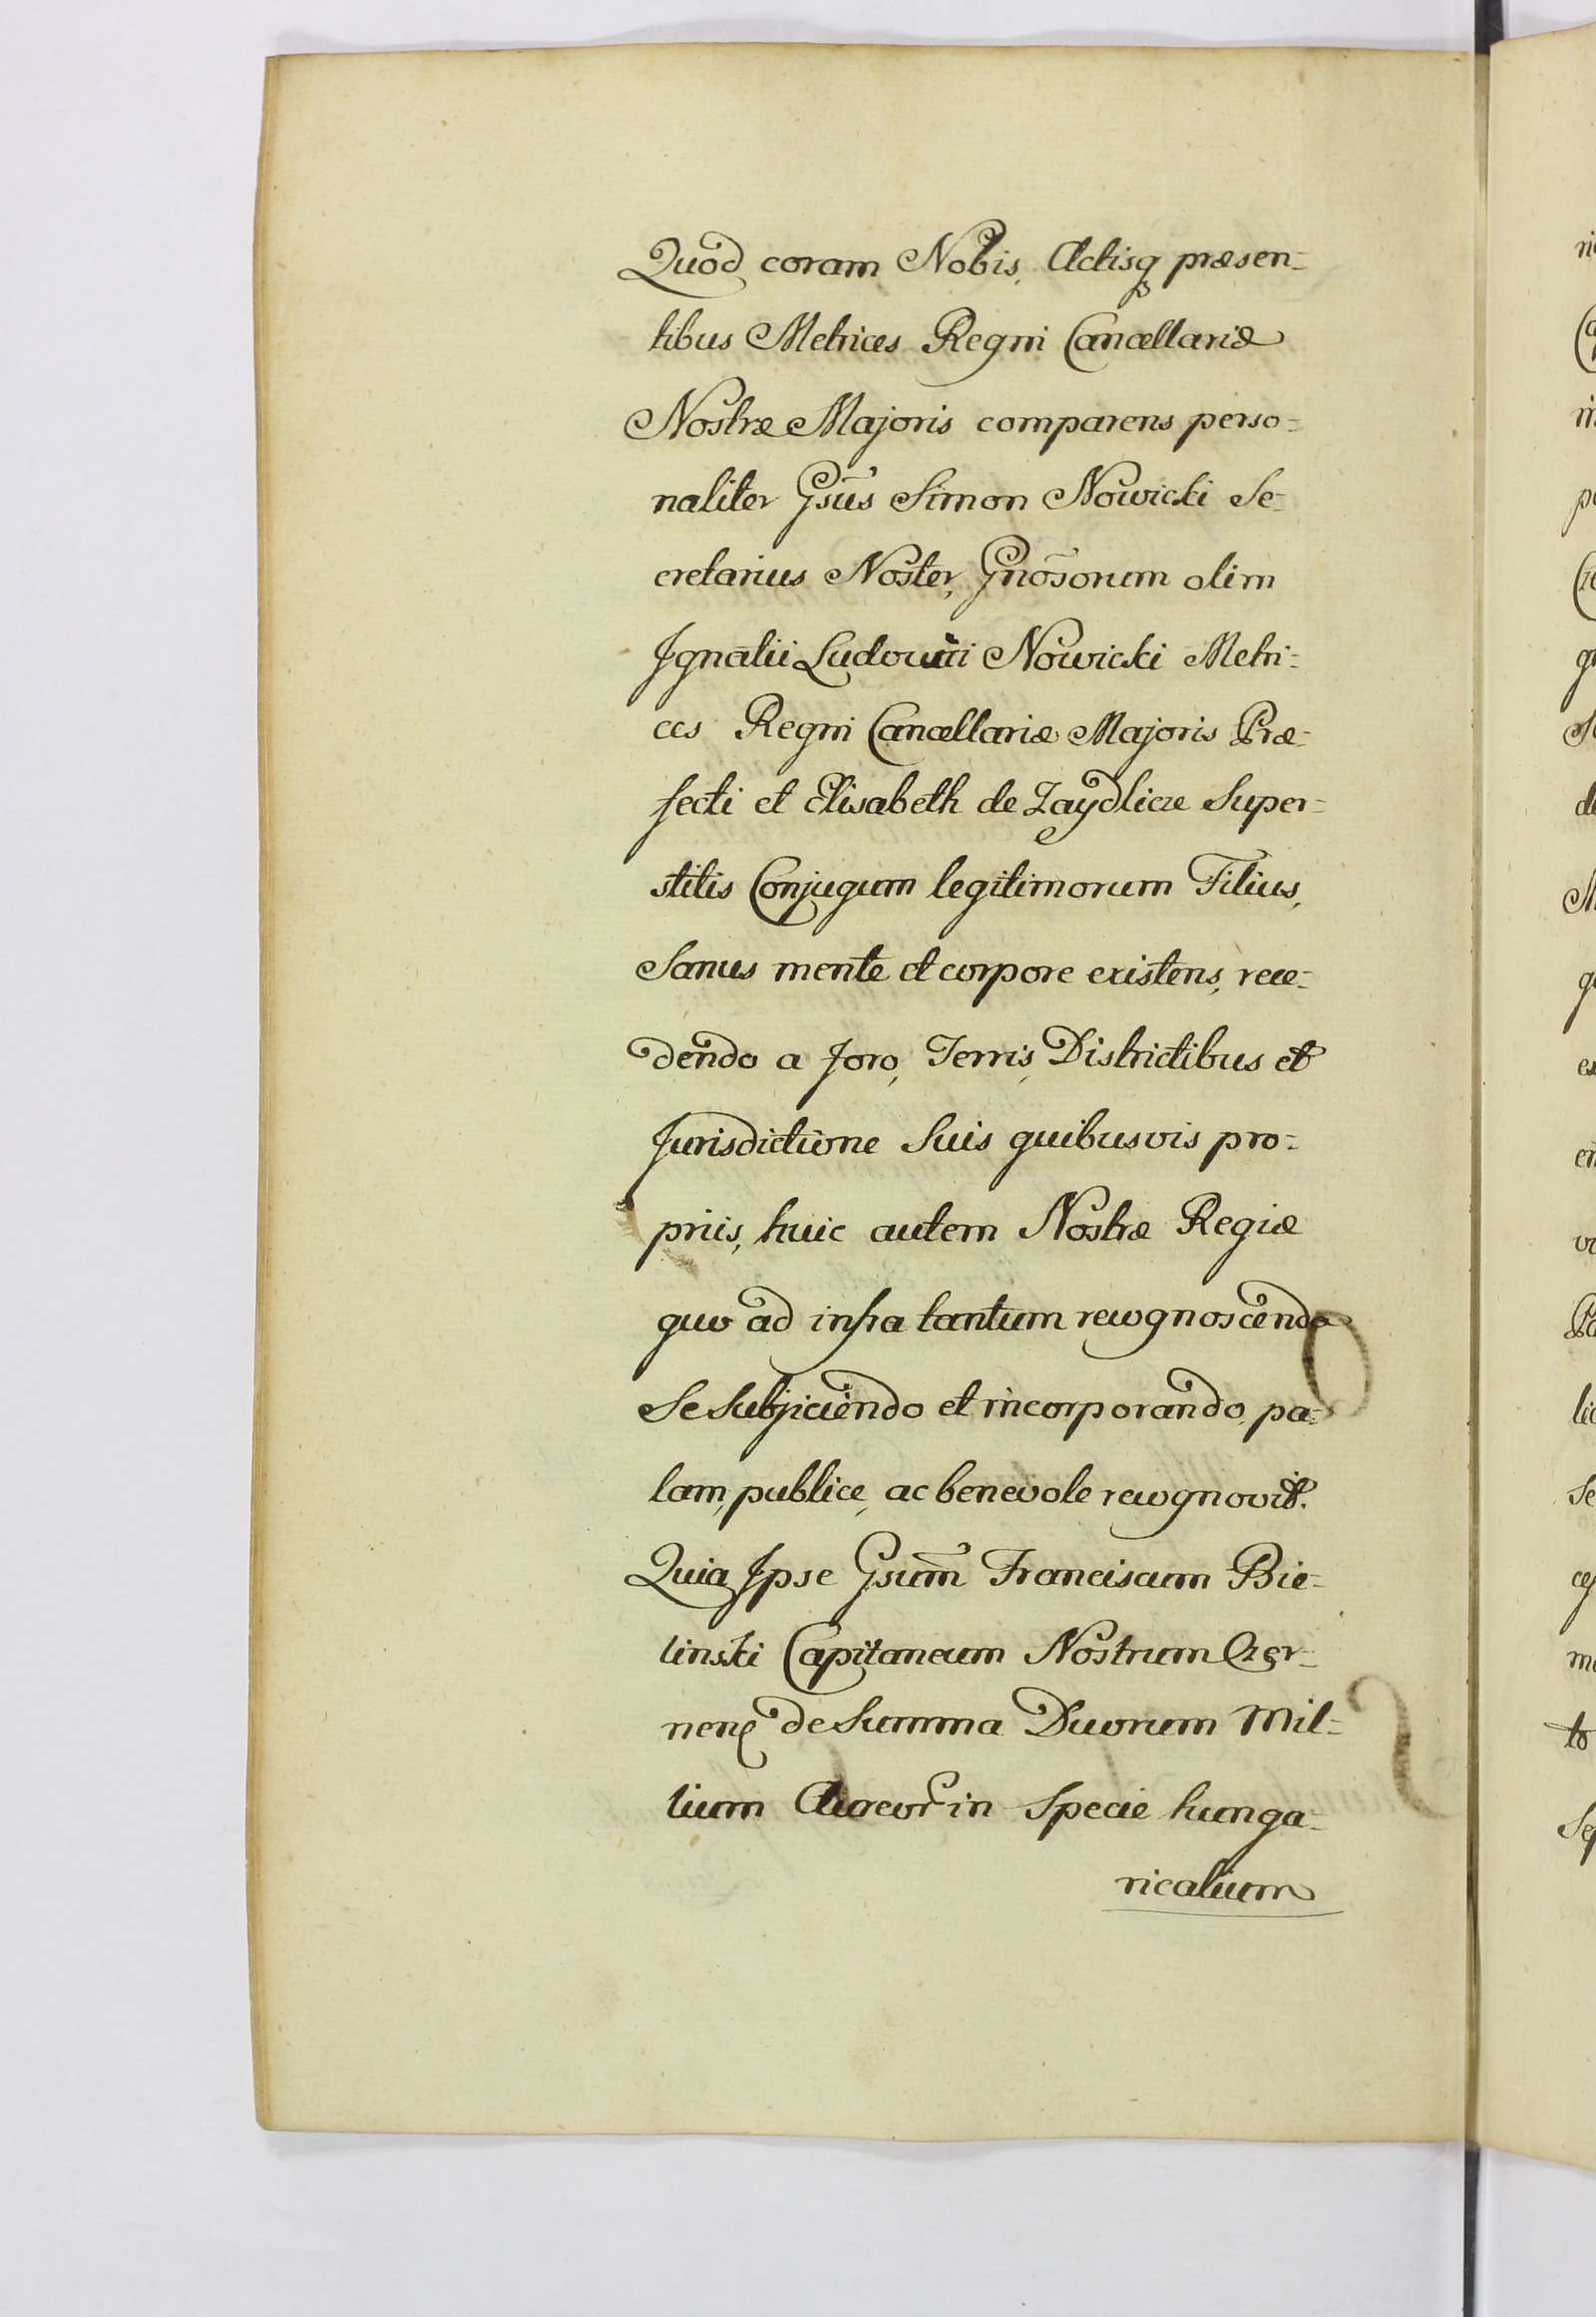 Quod coram Nobis, Actisq́ præsen-
tibus Metrices Regni Cancellariæ
Nostræ Majoris comparens perso-
naliter Gsũs Simon Nowicki Se-
cretarius Noster, Gnõsorum olim
Ignatii Ludovici Nowicki Metri-
ces Regni Cancellariæ Majoris Præ-
fecti et Elisabeth de Zaydlicze Super-
stitis Conjugum legitimorum Filius,
Sanus mente et corpore existens, rece-
dendo a foro, Terris, Districtibus et
Jurisdictione Suis quibusvis pro-
priis, huic autem Nostræ Regiæ
quo ad infra tantum recognoscenda
Se Subjiciendo et incorporando, pa-
lam, publice, ac benevole recognovit.
Quia Ipse Gsum̃ Franciscum Bie-
linski Capitaneum Nostrum Czer-
nenę de Summa Duorum Mil-
lium Aureor̃ in Specie hunga-
ricalium